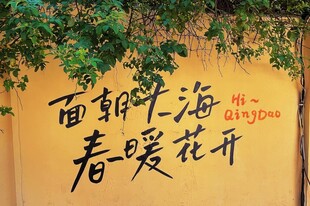 面朝大海
Hi~
QingDao
春暖花开